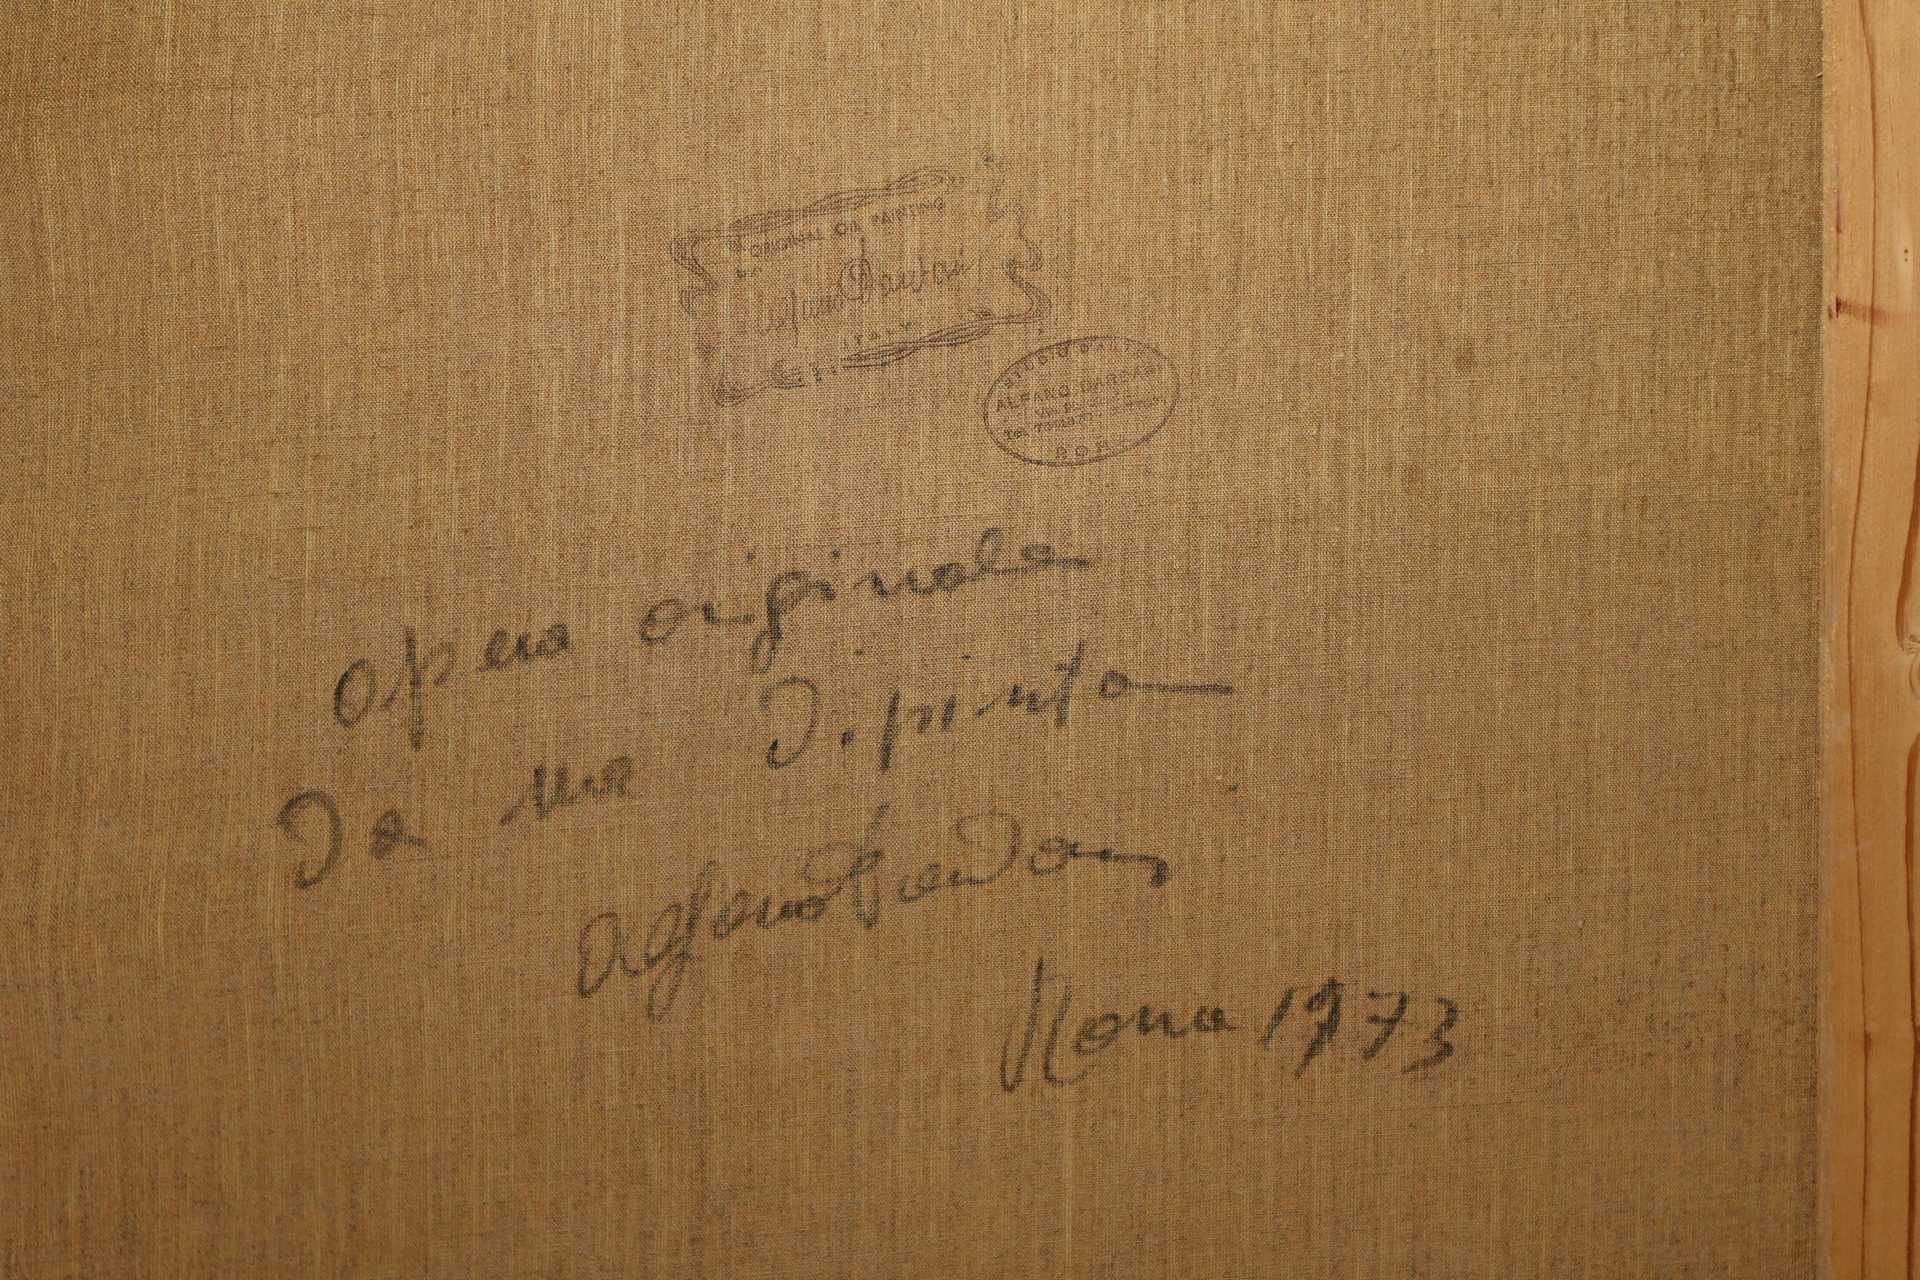 ORIGINAL OIL PAINTING
Alfano Dardari
ITALY
STUDIO D'ARTE
ALFANO DARDARI
Via
Tel.
ROMA
Opera originale
Da me Dipinta
Alfano Dardari
Roma 1973